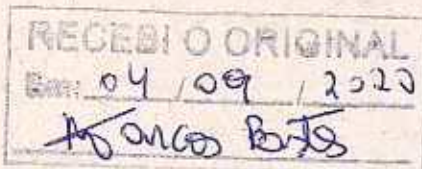 RECEBI O ORIGINAL
Em: 04 / 09 / 2020
Marcos